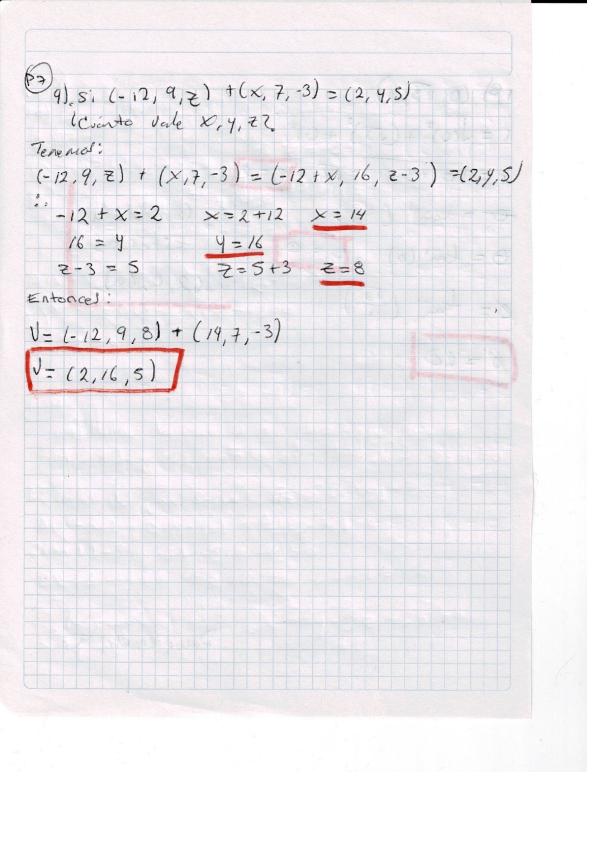 P7
9). Si (-12, 9, z) + (x, 7, -3) = (2, y, 5)
¿Cuánto vale x, y, z?.
Tenemos:
(-12, 9, z) + (x, 7, -3) = (-12 + x, 16, z-3) = (2, y, 5)
∴
-12 + x = 2 x = 2 + 12 x = 14
16 = y y = 16
z - 3 = 5 z = 5 + 3 z = 8
Entonces:
V = (-12, 9, 8) + (14, 7, -3)
V = (2, 16, 5)